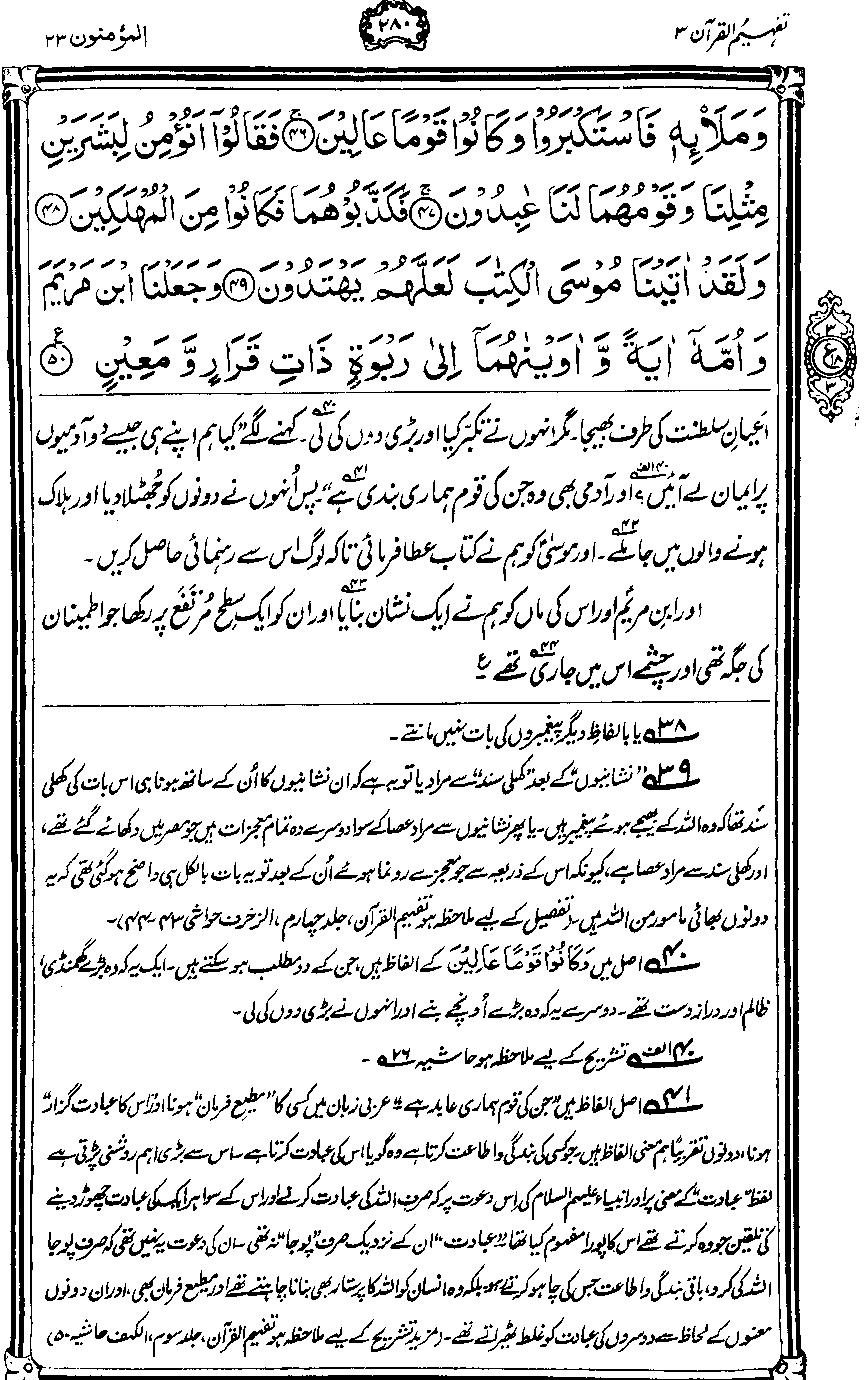 تفہیم القرآن ۳
۲۸۰
المؤمنون ۲۳
وَمَلَا۟ئِهٖ فَاسْتَكْبَرُوْا وَكَانُوْا قَوْمًا عَالِيْنَ ۚ﴿۴۶﴾ فَقَالُوْٓا اَنُؤْمِنُ لِبَشَرَيْنِ
مِثْلِنَا وَقَوْمُهُمَا لَنَا عٰبِدُوْنَ ۚ﴿۴۷﴾ فَكَذَّبُوْهُمَا فَكَانُوْا مِنَ الْمُهْلَكِيْنَ ﴿۴۸﴾
وَلَقَدْ اٰتَيْنَا مُوْسَى الْكِتٰبَ لَعَلَّهُمْ يَهْتَدُوْنَ ﴿۴۹﴾ وَجَعَلْنَا ابْنَ مَرْيَمَ
وَاُمَّهٗٓ اٰيَةً وَّاٰوَيْنٰهُمَآ اِلٰى رَبْوَةٍ ذَاتِ قَرَارٍ وَّمَعِيْنٍ ﴿۵۰﴾ ع
۳
ع ۱۸
۳
اعیانِ سلطنت کی طرف بھیجا۔ مگر انہوں نے تکبر کیا اور بڑی دوں کی لی۴۰۔ کہنے لگے ”کیا ہم اپنے ہی جیسے دو آدمیوں
پر ایمان لے آئیں۴۰ الف؟ اور آدمی بھی وہ جن کی قوم ہماری بندی ہے۴۱“۔ پس اُنہوں نے دونوں کو جُھٹلا دیا اور ہلاک
ہونے والوں میں جا ملے۴۲۔ اور موسیٰؑ کو ہم نے کتاب عطا فرمائی تاکہ لوگ اس سے رہنمائی حاصل کریں۔
اور ابنِ مریمؑ اور اس کی ماں کو ہم نے ایک نشان بنایا۴۳ اور ان کو ایک سطحِ مُرتَفَع پر رکھا جو اطمینان
کی جگہ تھی اور چشمے اس میں جاری تھے۴۴ ع
۳۸ یا بالفاظِ دیگر پیغمبروں کی بات نہیں مانتے۔
۳۹ ”نشانیوں“ کے بعد ”کھلی سند“ سے مراد یا تو یہ ہے کہ ان نشانیوں کا اُن کے ساتھ ہونا ہی اس بات کی کھلی
سَند تھا کہ وہ اللہ کے بھیجے ہوئے پیغمبر ہیں۔ یا پھر نشانیوں سے مراد عصا کے سوا دوسرے وہ تمام معجزات ہیں جو مصر میں دکھائے گئے تھے،
اور کھلی سند سے مراد عصا ہے، کیونکہ اس کے ذریعہ سے جو معجزے رونما ہوئے اُن کے بعد تو یہ بات بالکل ہی واضح ہو گئی تھی کہ یہ
دونوں بھائی مامور من اللہ ہیں۔ (تفصیل کے لیے ملاحظہ ہو تفہیم القرآن، جلد چہارم، الزخرف حواشی ۴۳-۴۴)۔
۴۰ اصل میں وَكَانُوْا قَوْمًا عَالِيْنَ کے الفاظ ہیں، جن کے دو مطلب ہو سکتے ہیں۔ ایک یہ کہ وہ بڑے گھمنڈی،
ظالم اور دراز دست تھے۔ دوسرے یہ کہ وہ بڑے اُونچے بنے اور انہوں نے بڑی دوں کی لی۔
۴۰ الف تشریح کے لیے ملاحظہ ہو حاشیہ ۲۶۔
۴۱ اصل الفاظ ہیں ”جن کی قوم ہماری عابد ہے“۔ عربی زبان میں کسی کا ”مطیعِ فرمان“ ہونا اور ”اُس کا عبادت گزار“
ہونا، دونوں تقریبًا ہم معنی الفاظ ہیں۔ جو کسی کی بندگی و اطاعت کرتا ہے وہ گویا اس کی عبادت کرتا ہے۔ اس سے بڑی اہم روشنی پڑتی ہے
لفظ ”عبادت“ کے معنی پر اور انبیاء علیہم السلام کی اِس دعوت پر کہ صرف اللہ کی عبادت کرنے اور اس کے سوا ہر ایک کی عبادت چھوڑ دینے
کی تلقین جو وہ کرتے تھے اس کا پورا مفہوم کیا تھا۔ ”عبادت“ ان کے نزدیک صرف ”پوجا“ نہ تھی۔ ان کی دعوت یہ نہیں تھی کہ صرف پوجا
اللہ کی کرو، باقی بندگی و اطاعت جس کی چاہو کرتے رہو۔ بلکہ وہ انسان کو اللہ کا پرستار بھی بنانا چاہتے تھے اور مطیعِ فرمان بھی، اور ان دونوں
معنوں کے لحاظ سے دوسروں کی عبادت کو غلط ٹھیراتے تھے۔ (مزید تشریح کے لیے ملاحظہ ہو تفہیم القرآن، جلد سوم، الکہف حاشیہ ۵۰)